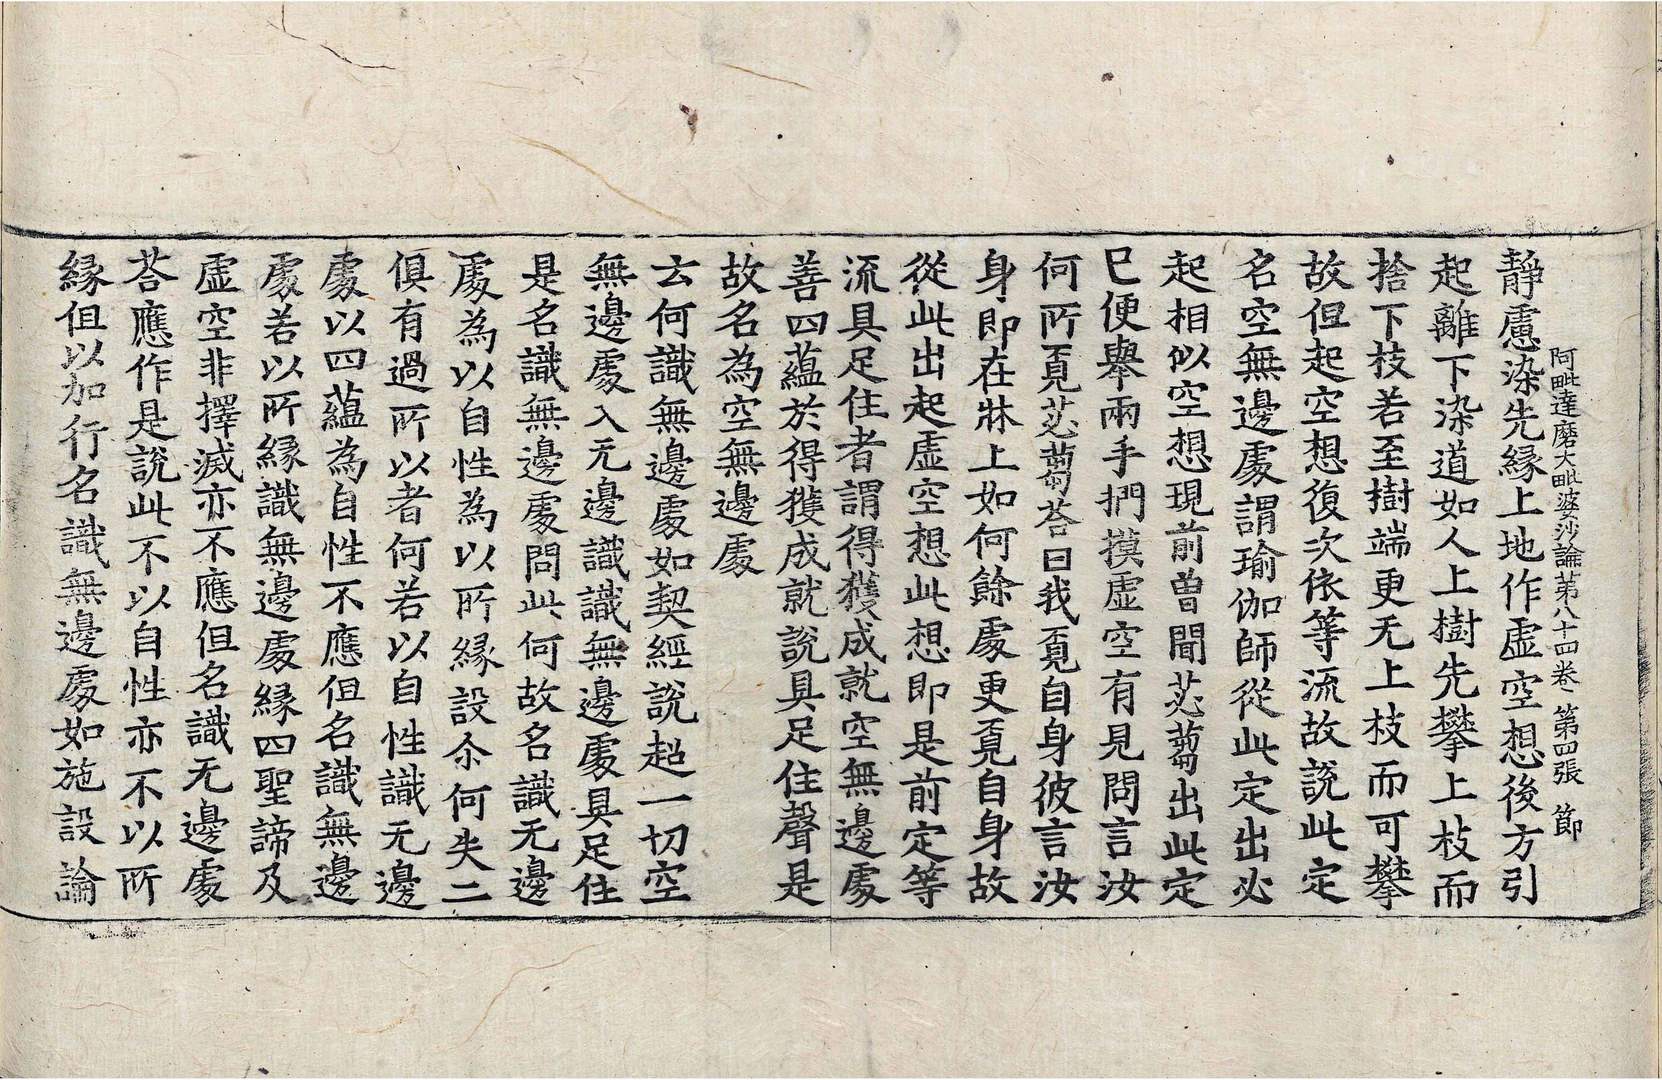 阿毗達磨大毗婆沙論苐八十四卷 第四張 節
靜慮染先縁上地作虛空想後方引
起離下染道如人上樹先攀上枝而
捨下枝若至樹端更无上枝而可攀
故但起空想復次依等流故說此定
名空無邊處謂瑜伽師從此定出必
起相似空想現前曾聞苾蒭出此定
已便舉兩手捫摸虛空有見問言汝
何所覔苾蒭荅曰我覔自身彼言汝
身即在牀上如何餘處更覔自身故
從此出起虛空想此想即是前定等
流具足住者謂得獲成就空無邊處
善四蘊於得獲成就說具足住聲是
故名為空無邊處
云何識無邊處如契經說超一切空
無邊處入无邊識識無邊處具足住
是名識無邊處問此何故名識无邊
處為以自性為以所縁設尒何失二
俱有過所以者何若以自性識无邊
處以四蘊為自性不應但名識無邊
處若以所縁識無邊處縁四聖諦及
虛空非擇滅亦不應但名識无邊處
荅應作是說此不以自性亦不以所
縁但以加行名識無邊處如施設論